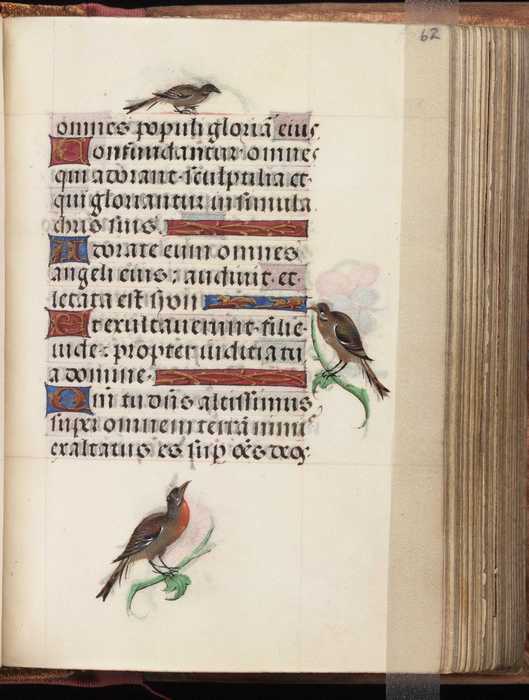 62
omnes populi gloriā eius
Confundantur omnes
qui adorant sculptilia et
qui gloriantur in simula
chris suis
Adorate eum omnes
angeli eius: audiuit et
letata est syon
Et exultauerunt filie
iude: propter iuditia tu
a domine
Qm̄ tu dn̄s altissimus
super omnem terrā nimi
exaltatus es sup oēs deos